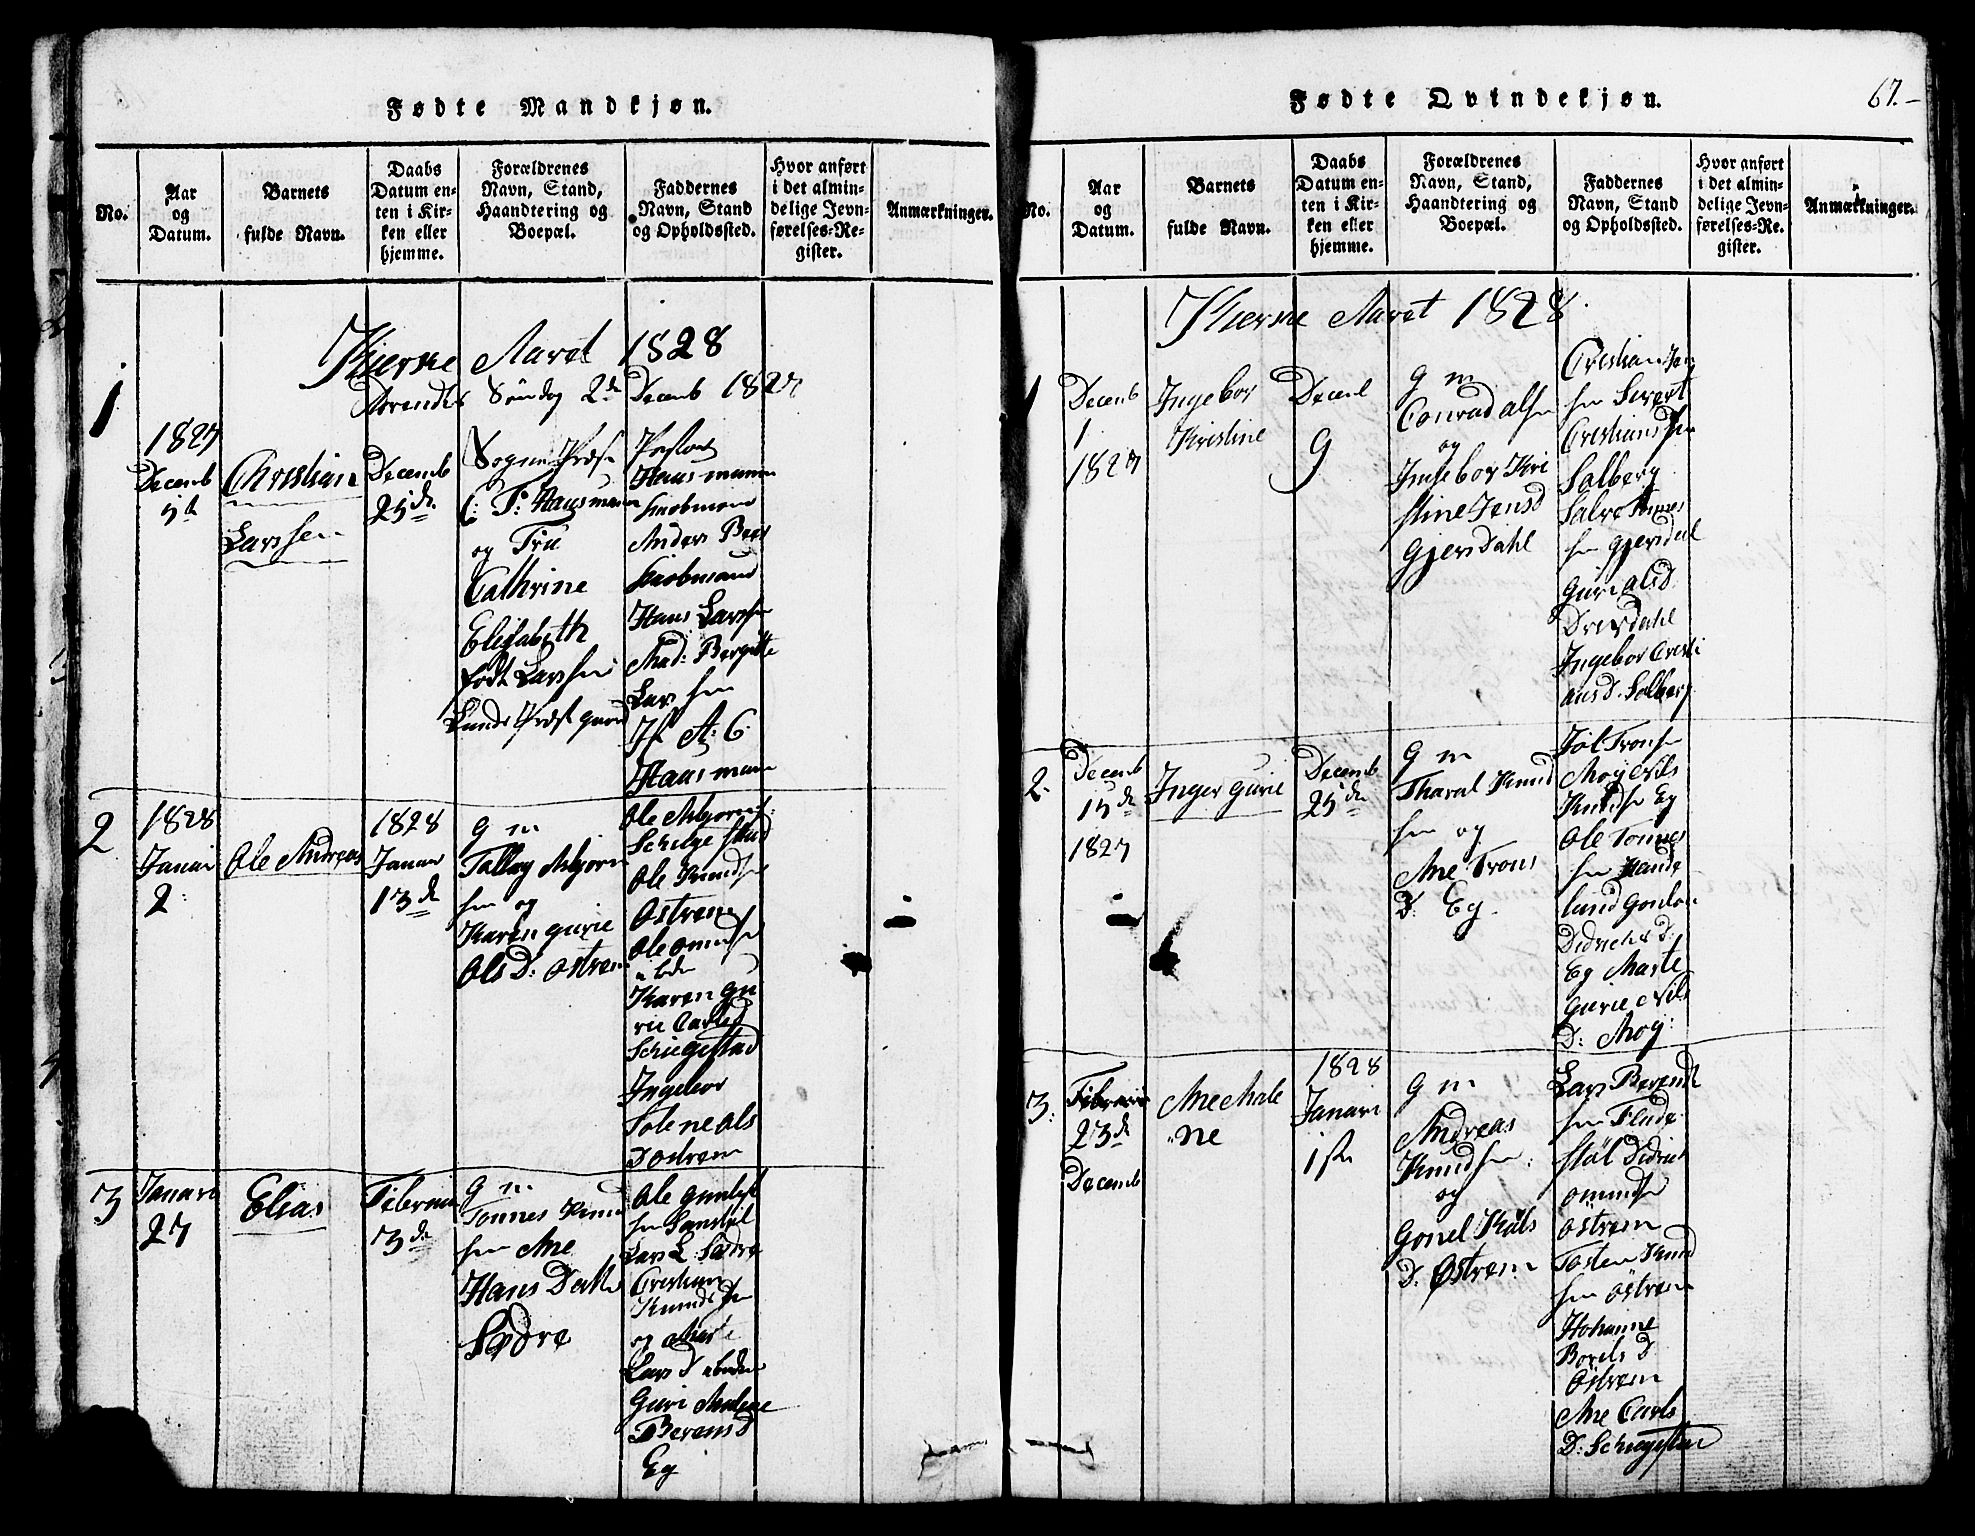 Fødte Mandkjøn.
No.
Aar
og
Datum.
Barnets
fulde Navn.
Daabs
Datum en-
ten i Kir-
ken eller
hjemme.
Forældrenes
Navn, Stand,
Haandtering og
Boepæl.
Faddernes
Navn, Stand
og Opholdssted.
Hvor anført
i det almin-
delige Jevn-
førelses-Re-
gister.
Anmærkninger.
Kierke Aaret 1828
Søndag 2de Decemb 1827
1
1827
Decemb
Christian
Larssen
Decemb
25de
Sogne Præst
C: F: Hausmann
og Frue
Cathrine
Elisabeth
født Larssen
Lunds Præstgaard
Hausmann
Anders Beer
Hans Larssen
Mad: Bergitte
Larssen
A: C
Hausmann
2
1828
Januari
2
Ole Andreas
1828
Januar
13de
g m
Tallag Asbjorn
sen og
Karen gurie
Ols D: Østrem
Ole Asbjorns
Ole Knudsen
Østrem
Ole Omunds
Karen Gu
rie Carls d
Schiegestad
Ingebor
Ols
D Østrem
3
Januari
27
Elias
Februari
3de
g m
Tønnes Knud
sen Ane
Hans Datter
Sødre
Ole
Lars L. Sødre
Cristian
Knudsen
og Marte
Lars D
Guri Malene
Berens D
Eg
Fødte Qvindekjøn.
67.
No.
Aar
og
Datum.
Barnets
fulde Navn.
Daabs
Datum en-
ten i Kir-
ken eller
hjemme.
Forældrenes
Navn, Stand,
Haandtering og
Boepæl.
Faddernes
Navn, Stand
og Opholdssted.
Hvor anført
i det almin-
delige Jevn-
førelses-Re-
gister.
Anmærkninger.
Kierke Aaret 1828.
1
Decemb
1
1827
Ingebor
Kristine
Decemb
9
g m
Conrad Alsen
og
Ingebor Kri
stine Jens d
Gjersdahl
Cristian Jen
sen Sivert
Cristiansen
Salberg
Salve Tønnes
sen Gjersdal
Guri Als D.
Dreysdahl
Ingebor Cristi
ans D. Salberg
2.
Decemb
15de
1827
Inger gurie
Decemb
25de
g m
Tharal Knud
sen og
Ane Trons
D: Eg.
Moy Nils
Knudsen Eg
Ole Tønnes
sen Haade
lund
Didrichs D:
Eg Marte
Gurie Nils
D: Moy:
3:
Februari
23de
Decemb
Ane Male
ne
1828
Januari
1ste
g m
Andreas
Knudsen:
og
Gonel Kols
D. Østrem
Lars Berendt
sen Flade
støl Didrick
Omunds
Østrem
Tosten Knud
sen Østrem
Hohanne
Borels D
Østrem
Ane Carls
D: Schiegestad